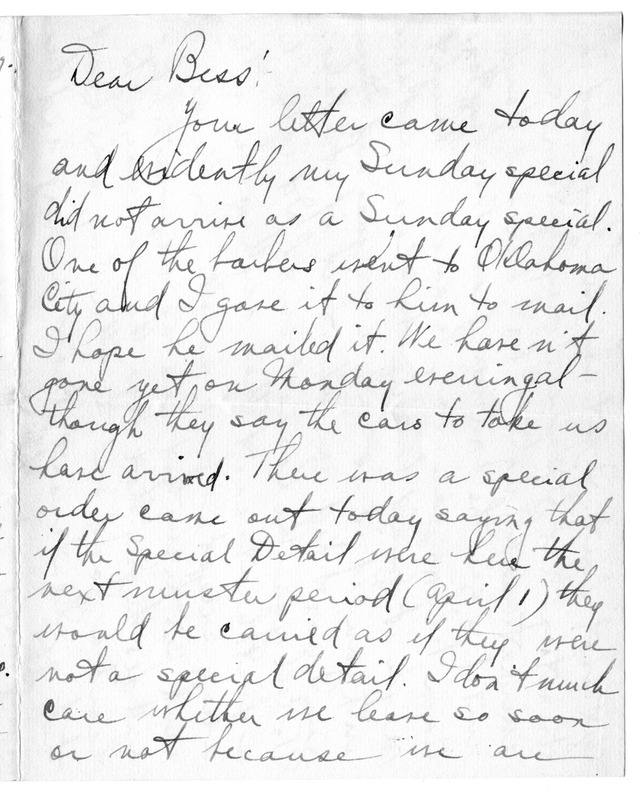 Dear Bess:
Your letter came today
and evidently my Sunday special
did not arrive as a Sunday special.
One of the barbers went to Oklahoma
City and I gave it to him to mail.
I hope he mailed it. We haven't
gone yet on Monday evening al-
though they say the cars to take us
have arrived. There was a special
order came out today saying that
if the Special Detail were here the
next muster period (April 1) they
would be carried as if they were
not a special detail. I don't much
care whether we leave so soon
or not because we are